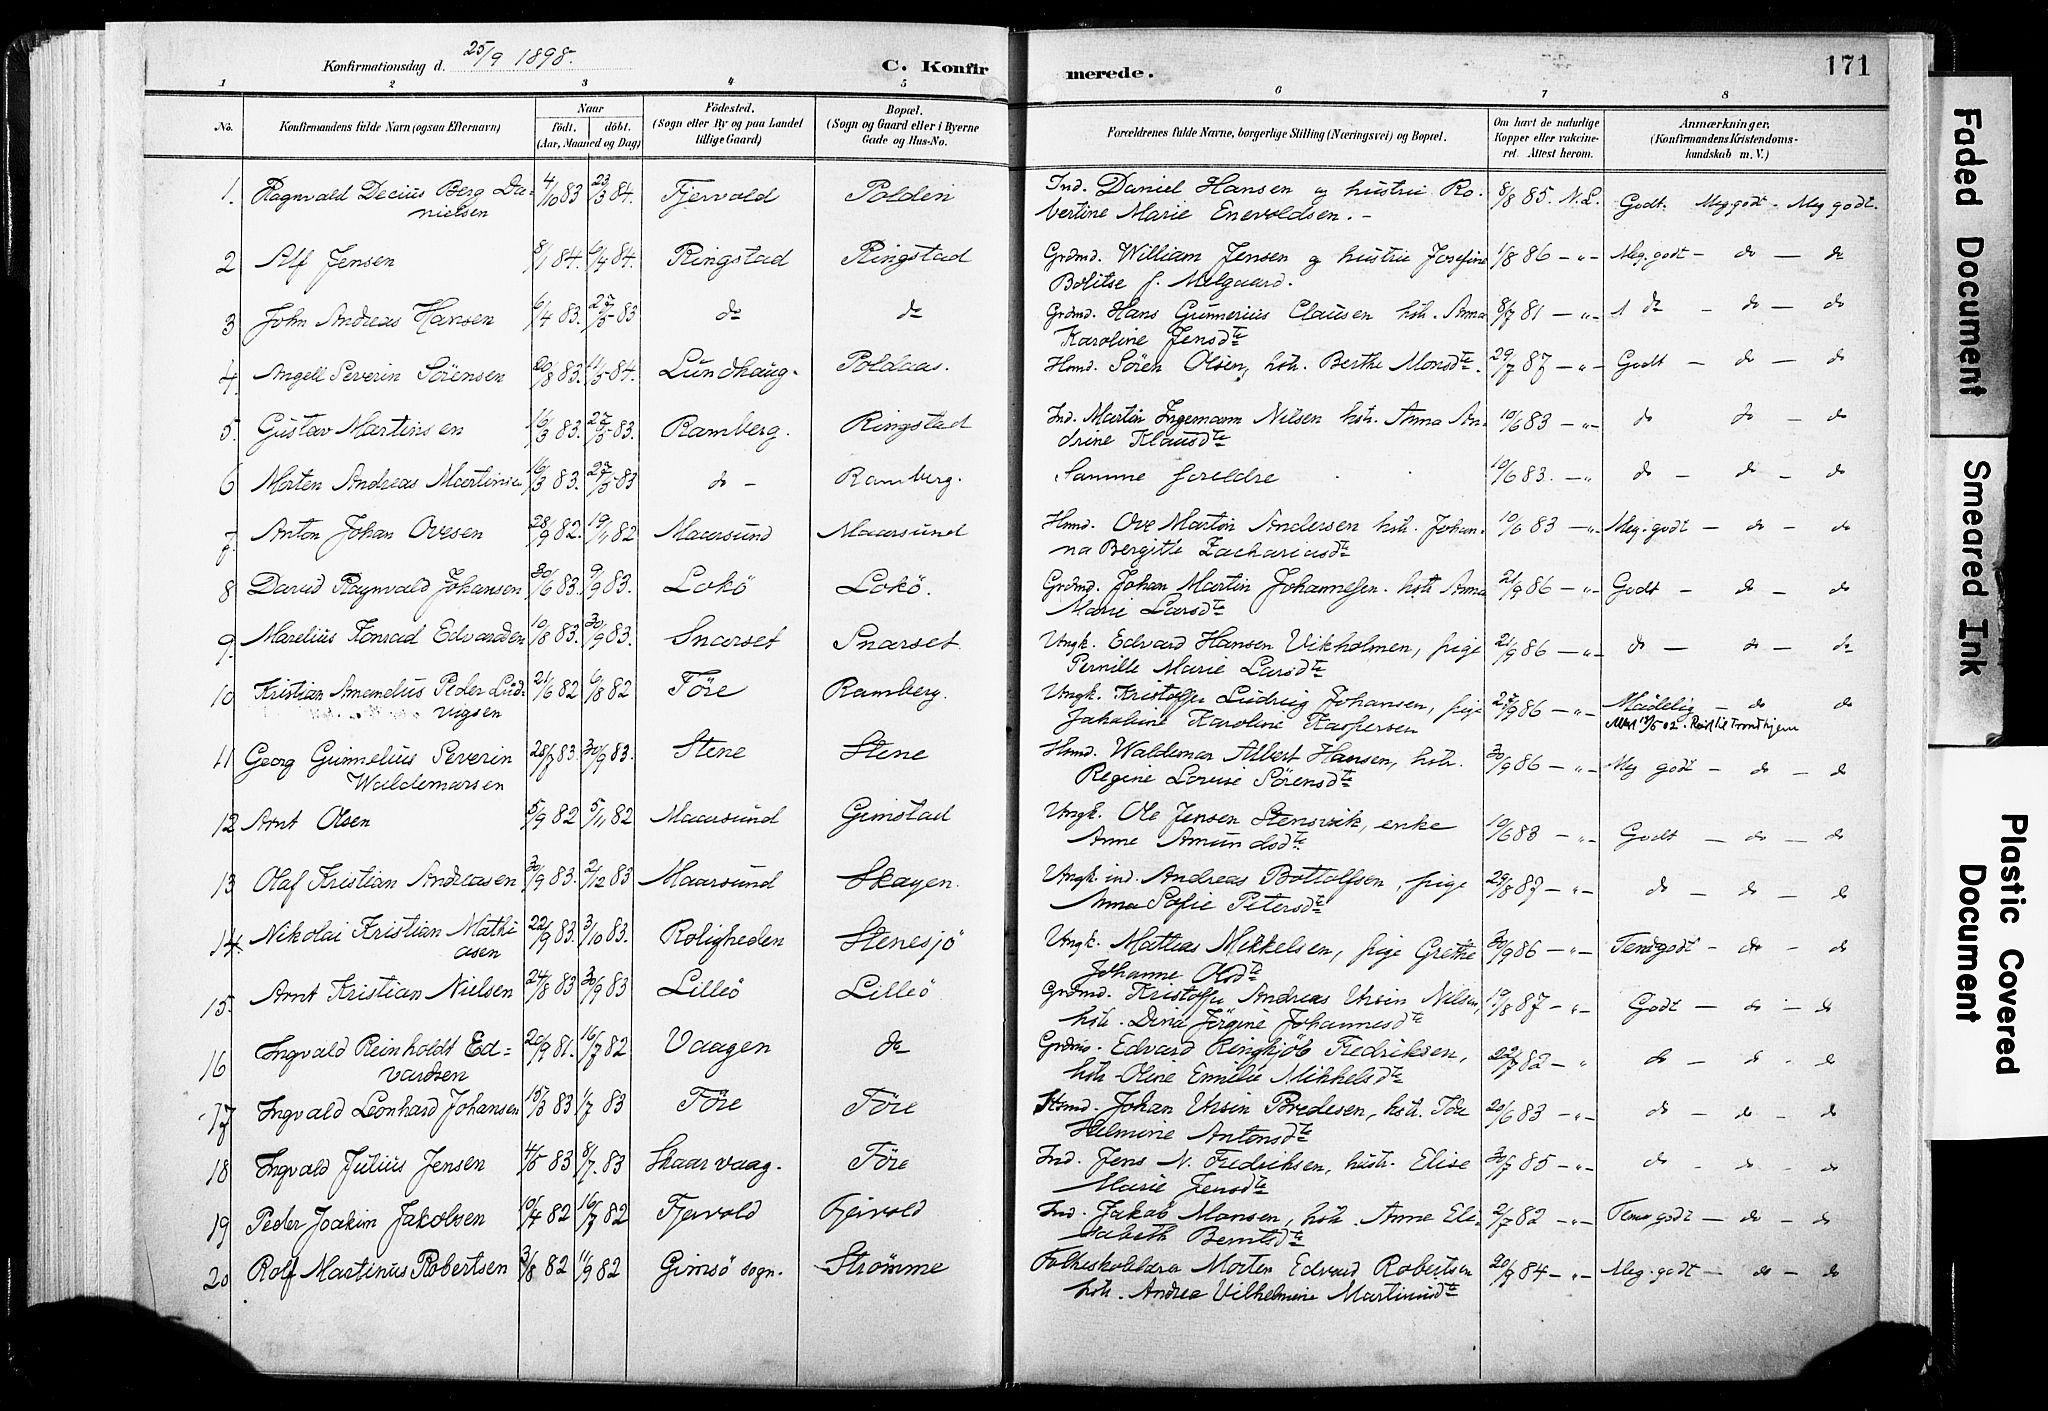 Konfirmationsdag d. 25/9 1898.
C. Konfirmerede.
171
1 2 3 4 5 6 7 8
No.
Konfirmandens fulde Navn (ogsaa Efternavn)
Naar
födt. döbt.
(Aar, Maaned og Dag)
Födested.
(Sogn eller By og paa Landet
tillige Gaard)
Bopæl.
(Sogn og Gaard eller i Byerne
Gade og Hus-No.
Forældrenes fulde Navne, borgerlige Stilling (Næringsvei) og Bopæl.
Om havt de naturlige
Kopper eller vakcine-
ret. Attest herom.
Anmærkninger,
(Konfirmandens Kristendoms-
kundskab m. V.)
1. Ragnvald Decius Berg Da- 4/10 83 23/3 84. Fjervold Polden Ind. Daniel Hansen og hustru Ro- 8/8 85. N.L. Godt. Meg godt - Meg godt.
nielsen bertine Marie Enevoldsen. -
2 Alf Jensen 8/1 84. 6/4 84. Ringstad Ringstad Grdmd. William Jensen og hustru Josefine 1/8 86 - " - Meg. godt - do - do
Bolitse f. Melgaard.
3 John Andreas Hansen 6/4 83. 27/5 83 do do Grdmd. Hans Gunnerius Clausen hstr. Anna 8/7 81 - " - do - do - do
Karoline Jensdte
4. Angell Severin Sörensen 20/8 83. 11/5 84. Lundhaug. Poldaas. Hmd. Sören Olsen, hstr. Berthe Monsdte. 29/7 87 - " - Godt - do - do
5. Gustav Martinsen 16/3 83. 27/5 83. Ramberg. Ringstad Ind. Martin Ingemann Nilsen hstr. Anna An- 10/6 83 - " - do do - do
drine Klausdte
6 Morten Andreas Martinsen 16/3 83. 27/5 83 do - Ramberg. Samme foreldre 10/6 83. - " - do - do - do
7. Anton Johan Ovesen 28/9 82. 19/11 82 Maarsund Maarsund Hmd. Ove Martin Andersen hstr. Johan- 10/6 83 - " - Meg. godt - do - do
na Bergitte Zachariasdte
8 David Ragnvald Johansen 30/6 83. 9/9 83. Lokö Lokö. Grdmd. Johan Martin Johannessen. hstr Anna 21/9 86 - " - Godt - do - do
Marie Larsdte
9. Marelius Konrad Edvardsen 10/8 83. 30/9 83. Snarset Snarset Ungk. Edvard Hansen Vikholmen, pige 21/9 86 - " - do - do - do
Pernille Marie Larsdte
10 Kristian Amendus Peder Lud- 21/6 82 6/8 82 Före Ramberg. Ungk. Kristoffer Ludvig Johansen, pige 27/9 86 - " - Maadelig - do do
vigsen Jakobine Karoline Kaspersen
Reist til Trondhjem
11 Georg Gunnelius Severin 28/7 83. 30/9 83. Stene Stene Hmd. Waldemar Albert Hansen, hstr. 30/9 86 - " - Meg godt - do - do
Waldemarsen Regine Louise Sörensdte
12 Arnt Olsen 5/9 82 5/11 82 Maarsund Gimstad Ungk. Ole Jensen Stensvik, enke 10/6 83 - " - Godt - do - do
Anne Amundsdte.
13 Olaf Kristian Andreasen 30/9 83. 2/12 83 Maarsund Skagen. Ungk. ind. Andreas Bottolfsen, pige 29/8 87 - " - do - do - do
Anna Sofie Petersdte
14. Nikolai Kristian Mathi- 22/9 83. 3/10 83. Roligheden Stenesjö Ungk. Mathias Mikkelsen, pige Grethe 30/9 86 - " - Temgodt - do - do
asen Johanne Olsdte
15. Arnt Kristian Nielsen 24/8 83 30/9 83 Lilleö Lilleö Grdmd. Kristoffer Andreas Ursin Nilsen, 19/8 87 - " - Godt - do - do
hstr. Dina Jörgine Johannesdte
16 Ingvald Reinholdt Ed- 20/9 81. 16/7 82 Vaagen do Grdmd. Edvard Ringkjöb Fredriksen, 22/7 82 - " do - do - do
vardsen hstr. Oline Emilie Mikkelsdte
17 Ingvald Leonhard Johansen 15/3 83 1/7 83 Före Före Hmd. Johan Ursin Bredesen, hstr. Ida 20/6 83 - " - do - do - do
Helmine Antonsdte
18 Ingvald Julius Jensen 4/5 83 8/7 83 Skaarvaag. Före Ind. Jens N. Fredriksen, hustr. Elise 30/7 85 - " - do - do - do
Marie Jensdte
19 Peder Joakim Jakobsen 19/4 82 16/7 82 Fjervold Fjervold Ind. Jakob Monsen, hstr. Anne Eli- 2/7 82 - " - Temgodt - do - do
sabeth Berntsdte
20 Rolf Martinus Robertsen 3/8 82 11/9 82 Gimsö sogn. Strömme Folkeskolelærer Morten Edvard Robertsen 20/9 84 - " - Meg. godt - do - do
hstr. Andrea Vilhelmine Martinusdte
Faded Document
Smeared Ink
Plastic Covered
Document